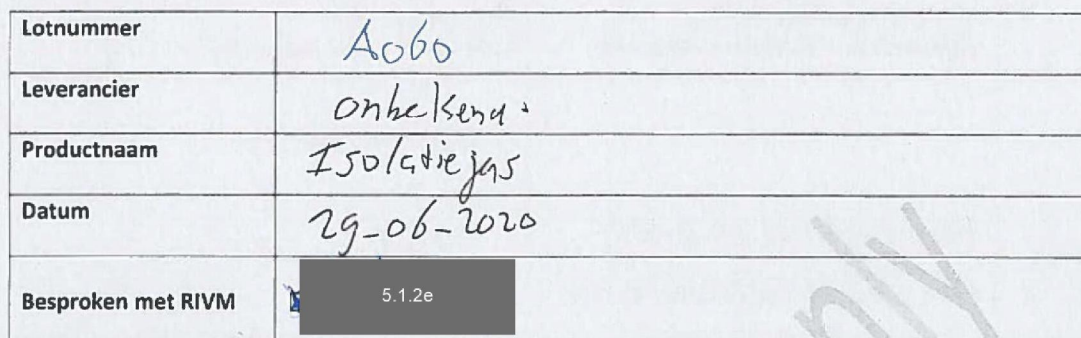 Lotnummer A060
Leverancier onbekend.
Productnaam Isolatiejas
Datum 29-06-2020
Besproken met RIVM 5.1.2e
nly